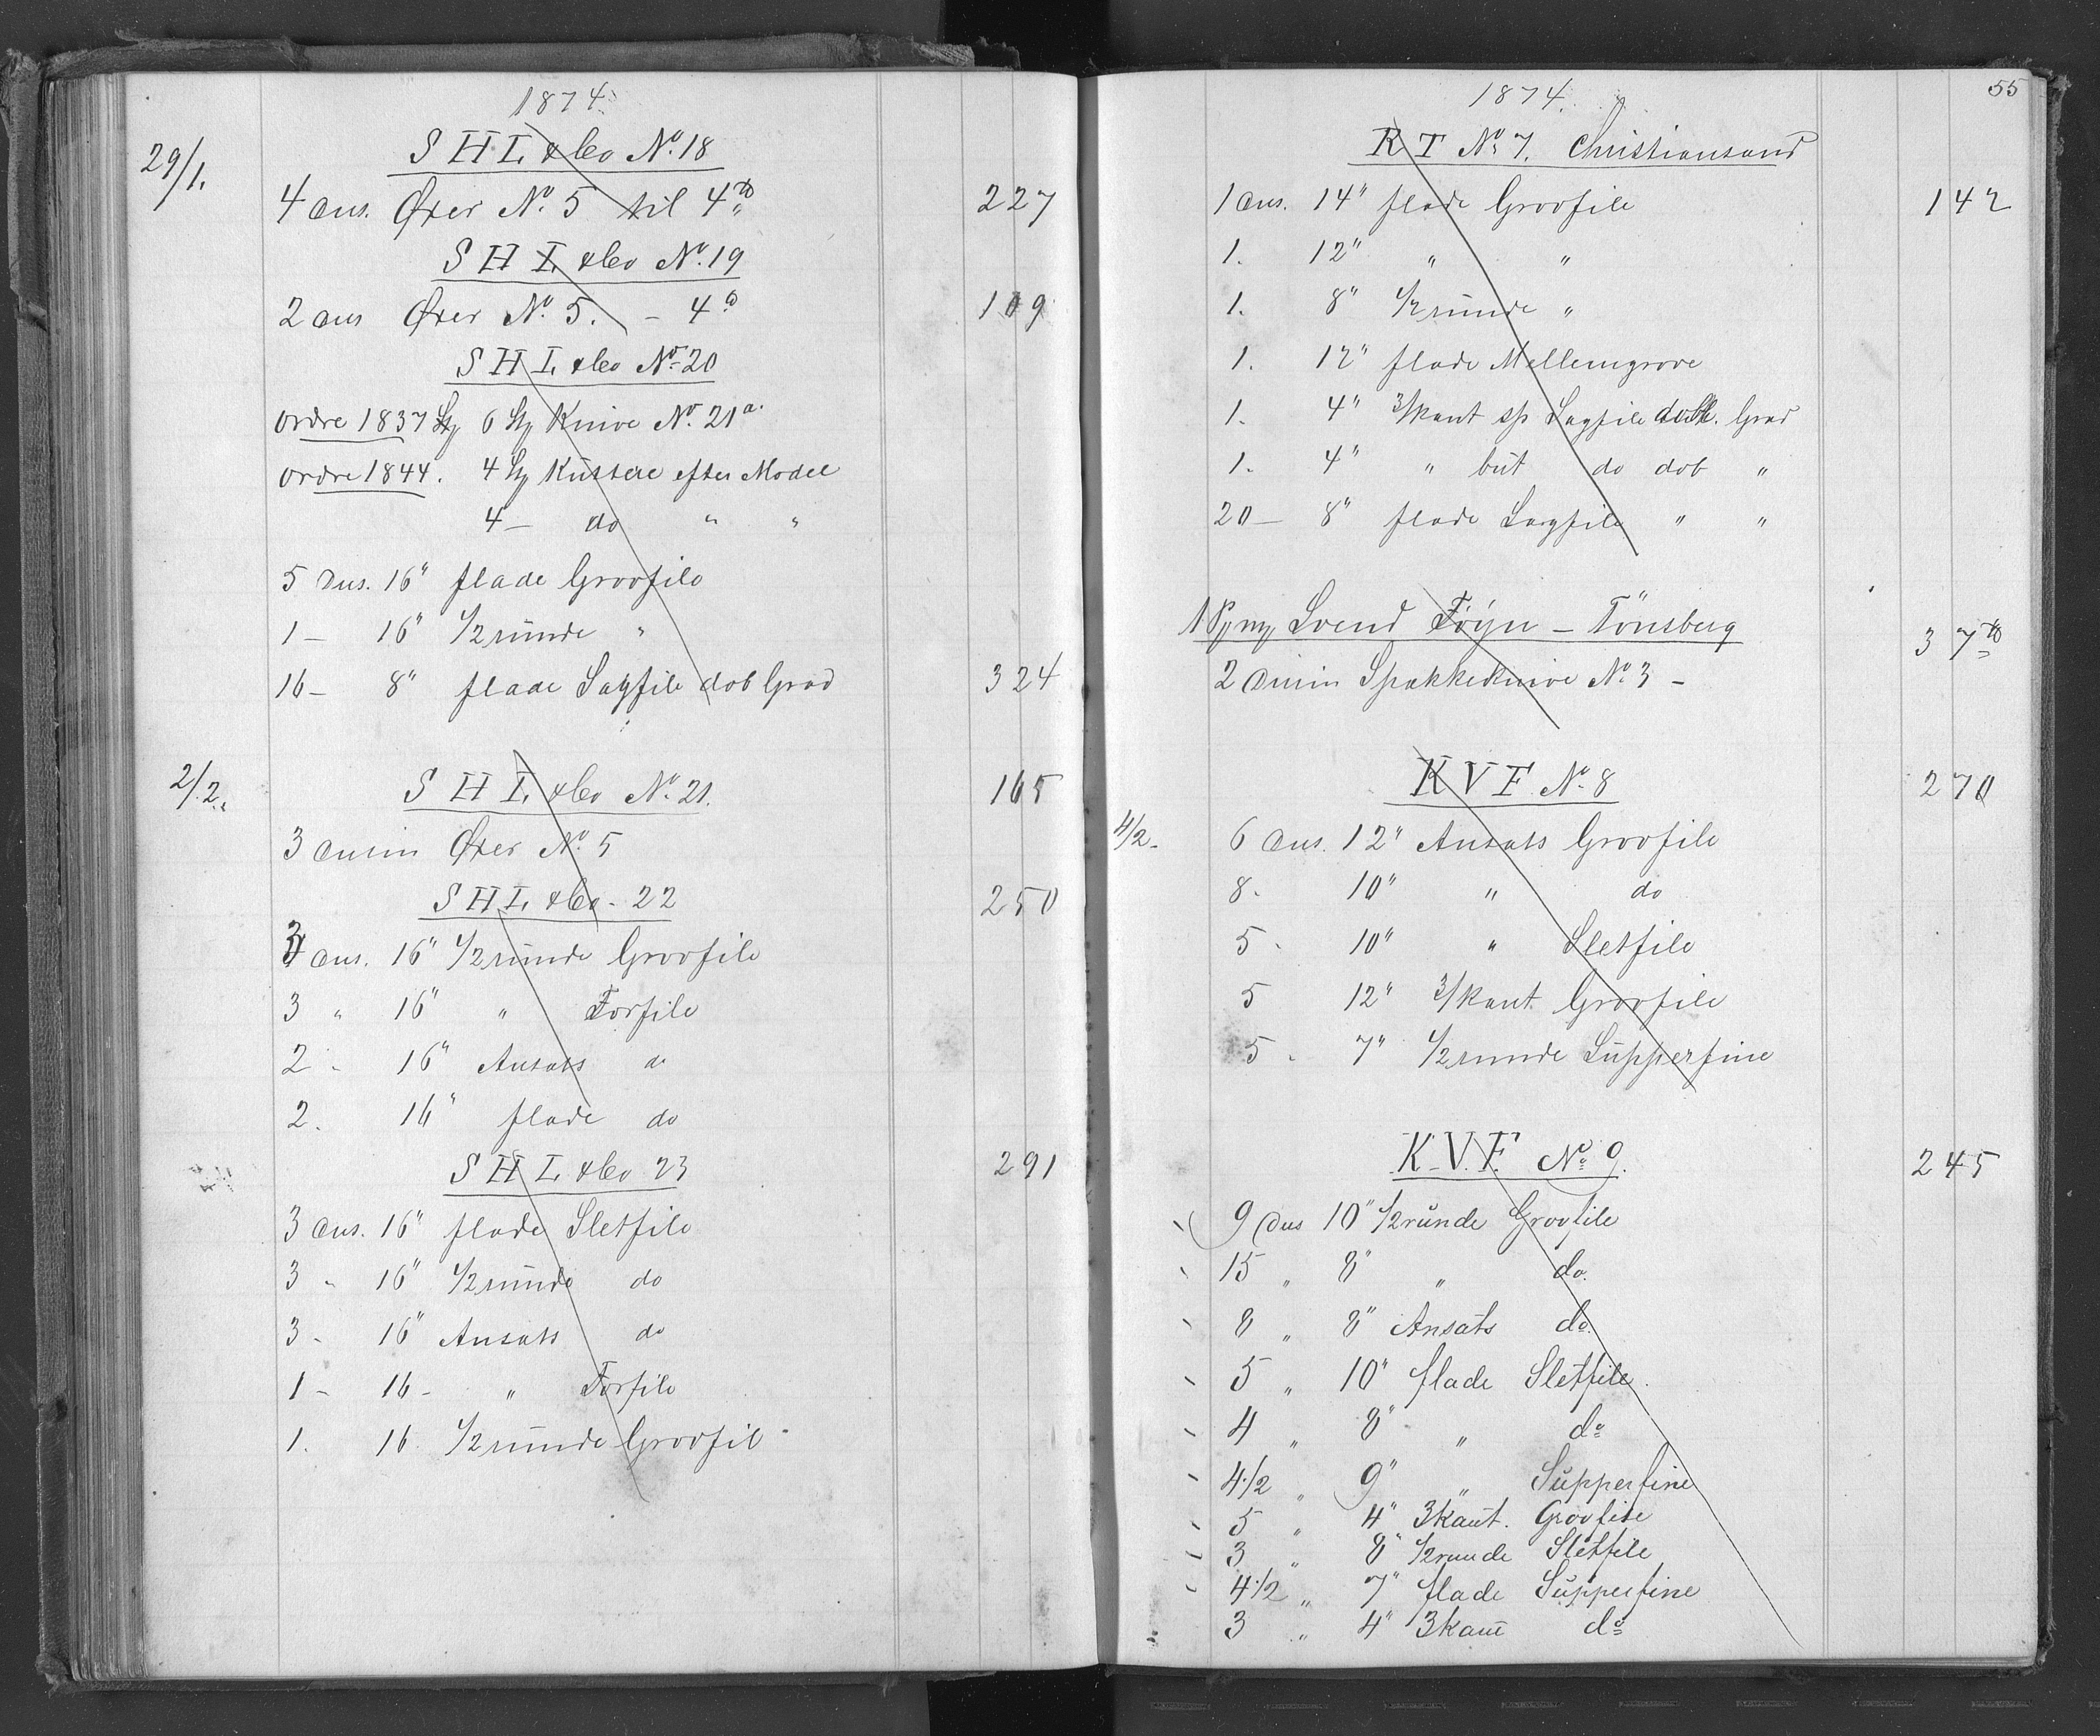 1874.
S H L & Co No. 18
29/1.
4 dus. Øxer No. 5 til 4 ℔ 227
S H L & Co No. 19
2 dus Øxer No. 5. – 4 ℔ 109
S H L & Co No. 20
Ordre 1837 6 Knive No. 21a.
Ordre 1844. 4 efter Model
4 – do " "
5 Dus. 16" flade Grovfile
1 – 16" 1/2 runde "
16 – 8" flade Sagfile dob Grad 324
2/2.
S H L & Co No. 21. 165
3 dusin Øxer No. 5
S H L & Co - 22 250
3 dus. 16" 1/2 runde Grovfile
3 " 16" " Forfile
2 - 16" Ansats do
2. 16" flade do
S H L & Co 23 291
3 dus. 16" flade Sletfile
3 " 16" 1/2 runde do
3 - 16" Ansats do
1 - 16 - " Forfile
1. 16 1/2 runde Grovfil
55
1874.
K T No. 7. Christiansand
1 dus. 14" flade Grovfile 142
1. 12" " "
1. 8" 1/2 runde "
1. 12" flade Mellemgrove
1. 4" 3/kant sp Sagfile dobb. Grad
1. 4" " but do dob "
20 – 8" flade Sagfile " "
1 Svend Föyn – Tönsberg 37 ℔
2 Dusin Spækkeknive No. 3 –
K V F No. 8 270
4/2.
6 dus. 12" Ansats Grovfile
8. 10" " do
5 - 10" " Sletfile
5 12" 3/kant Grovfile
5 - 7" 1/2 runde Supperfine
K. V. F. No. 9. 245
9 dus 10" 1/2 runde Grovfile
15 " 8" " do.
8 " 8" Ansats do.
5 " 10" flade Sletfile.
4 " 8" " do
4 1/2 " 9" " Supperfine
5 " 4" 3kant. Grovfile
3 " 8" 1/2 runde Sletfile
4 1/2 " 7" flade Supperfine
3 " 4" 3kant do